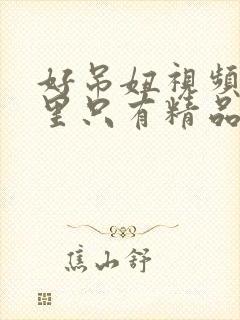 好吊妞視頻
里只有精品
焦山舒